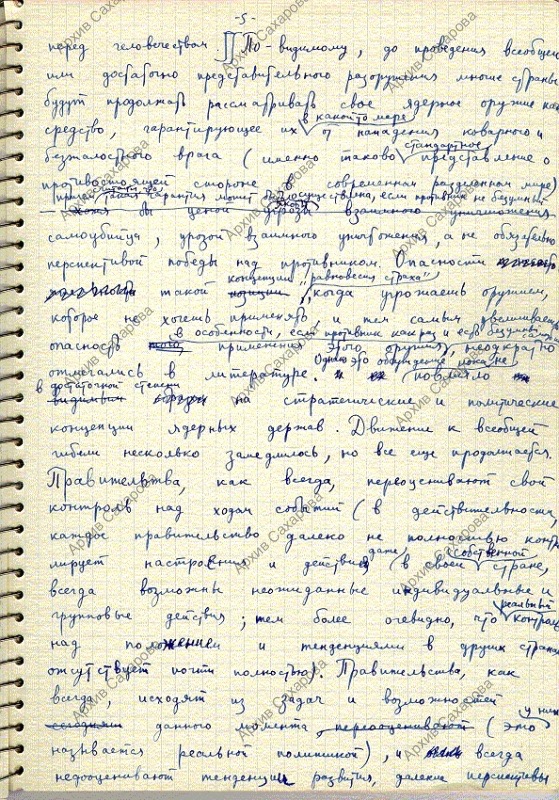 -5-
перед человечеством. По-видимому, до проведения всеобщего
или достаточно представительного разоружения многие страны
будут продолжать рассматривать свое ядерное оружие как
в какой-то мере
средство, гарантирующее их от нападения коварного и
стандартное
безжалостного врага (именно таково представление о
противостоящей стороне в современном разделенном мире)
такая гарантия может осуществлена, если противник не безумный
ценой угрозы взаимного уничтожения
самоубийца, угрозой взаимного уничтожения, а не обязательно
перспективой победы над противником. Опасности
концепции "равновесия страха"
такой позиции, когда угрожаешь оружием,
которое не хочешь применять, и тем самым увеличиваешь
в особенности, если противник как раз и есть безумный
опасность того применения этого оружия, неоднократно
Однако это обсуждение пока не
отмечались в литературе. повлияло
в достаточной степени
видимым образом на стратегические и политические
концепции ядерных держав. Движение к всеобщей
гибели несколько замедлилось, но все еще продолжается.
Правительства, как всегда, переоценивают свой
контроль над ходом событий (в действительности,
каждое правительство далеко не полностью конт-
даже собственной
лирует настроения и действия (в своей стране,
всегда возможны неожиданные индивидуальные и
реальный
групповые действия; тем более очевидно, что контроль
над положением и тенденциями в других странах
отсутствует почти полностью). Правительства, как
всегда, исходят из задач и возможностей
у них
сегодняшн данного момента переоценивают (это
называется реальной политикой), и всегда
недооценивают тенденции развития, далекие перспективы
Архив Сахарова